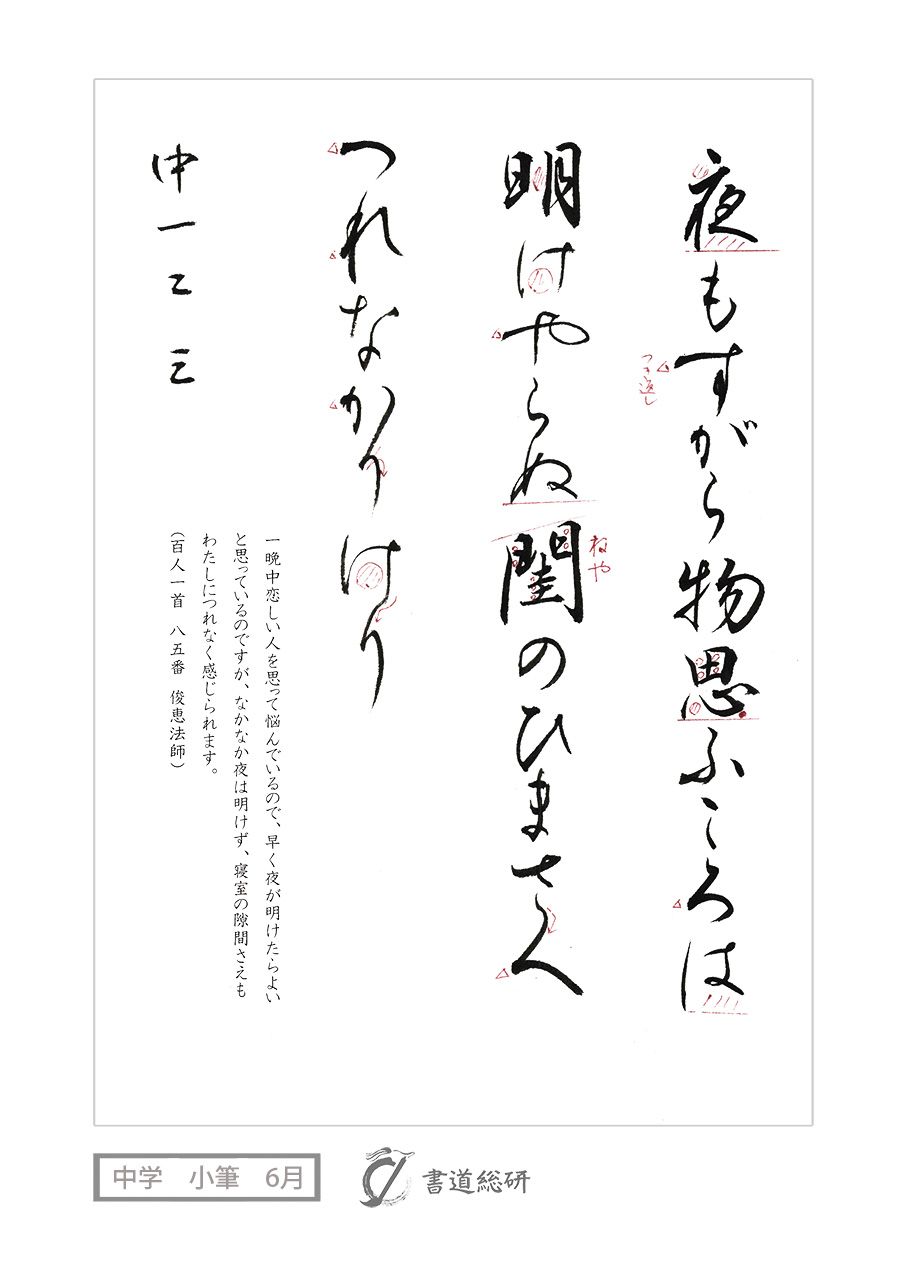 夜もすがら物思ふころは
つき返し
明けやらぬ閨のひまさへ
ねや
つれなかりけり
中一二三
一晩中恋しい人を思って悩んでいるので、早く夜が明けたらよい
と思っているのですが、なかなか夜は明けず、寝室の隙間さえも
わたしにつれなく感じられます。
(百人一首 八五番 俊恵法師)
中学 小筆 6月
書道総研